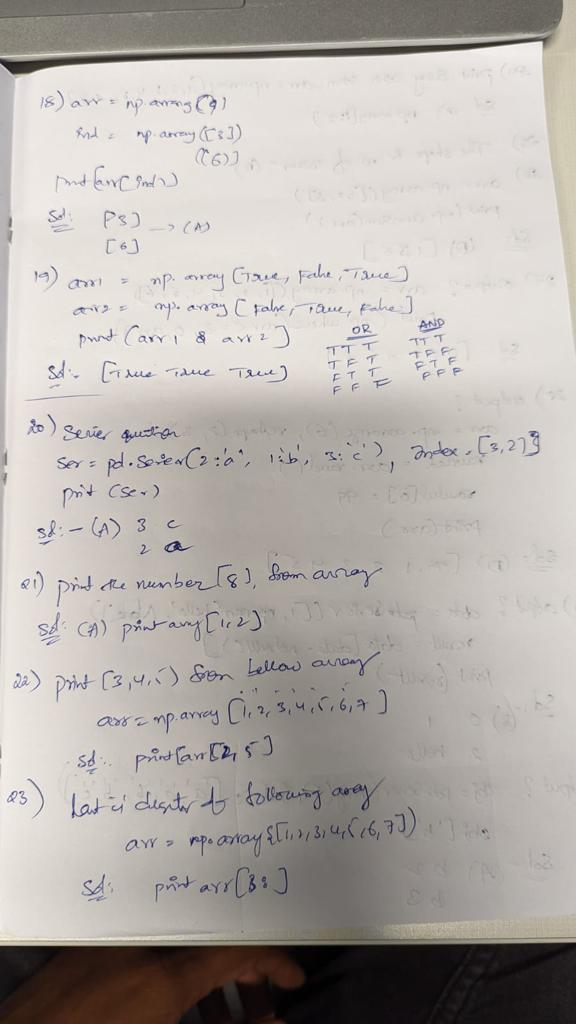 18) arr = np.arrang(9)
ind = np.array([3])
([6])
print(arr[ind])
Sol: [3]
[6] → (A)
19) arr1 = np.array [True, False, True]
arr2 = np.array [False, True, False]
print (arr1 & arr2)
Sol:- [True True True]
OR
TT T
T F T
F T T
F F F
AND
TT T
T F F
F T F
F F F
20) Series question
Ser = pd.Series(2:'a', 1:'b', 3:'c'), Index = [3,2]}
print (Ser)
Sol:- (A) 3 c
2 a
21) print the number [8], from array
Sol: (A) print array [1,2]
22) print [3,4,5) from bellow array
arr = np.array [1,2,3,4,5,6,7]
Sol:. print[arr[2,5]
23) following array
arr = np.array{[1,2,3,4,5,6,7])
Sol: print arr[3:]